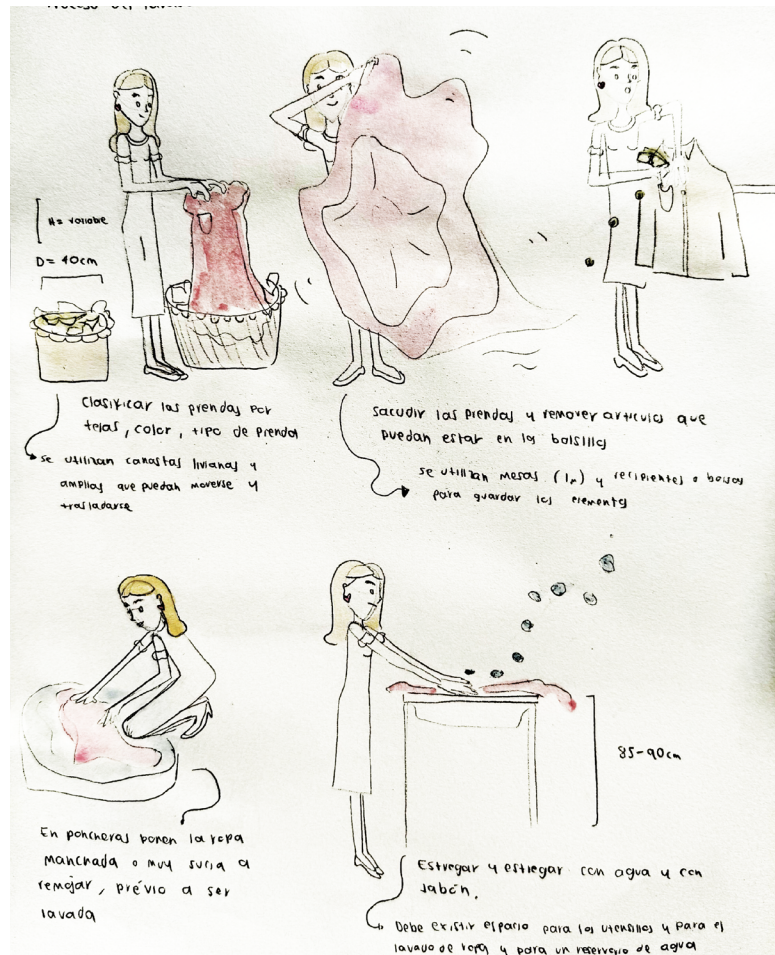 H= variable
D= 40cm
Clasificar las prendas por
telas, color, tipo de prenda
se utilizan canastas livianas y
amplias que puedan moverse y
trasladarse
Sacudir las prendas y remover articulos que
puedan estar en la bolsillo
se utilizan mesas (1m) y recipientes o bolsas
para guardar los elementos
En poncheras ponen la ropa
manchada o muy sucia a
remojar, prévio a ser
lavada
85-90cm
Estregar y estregar con agua y con
Jabón.
Debe existir espacio para los utensilios y para el
lavado de ropa y para un reservorio de agua